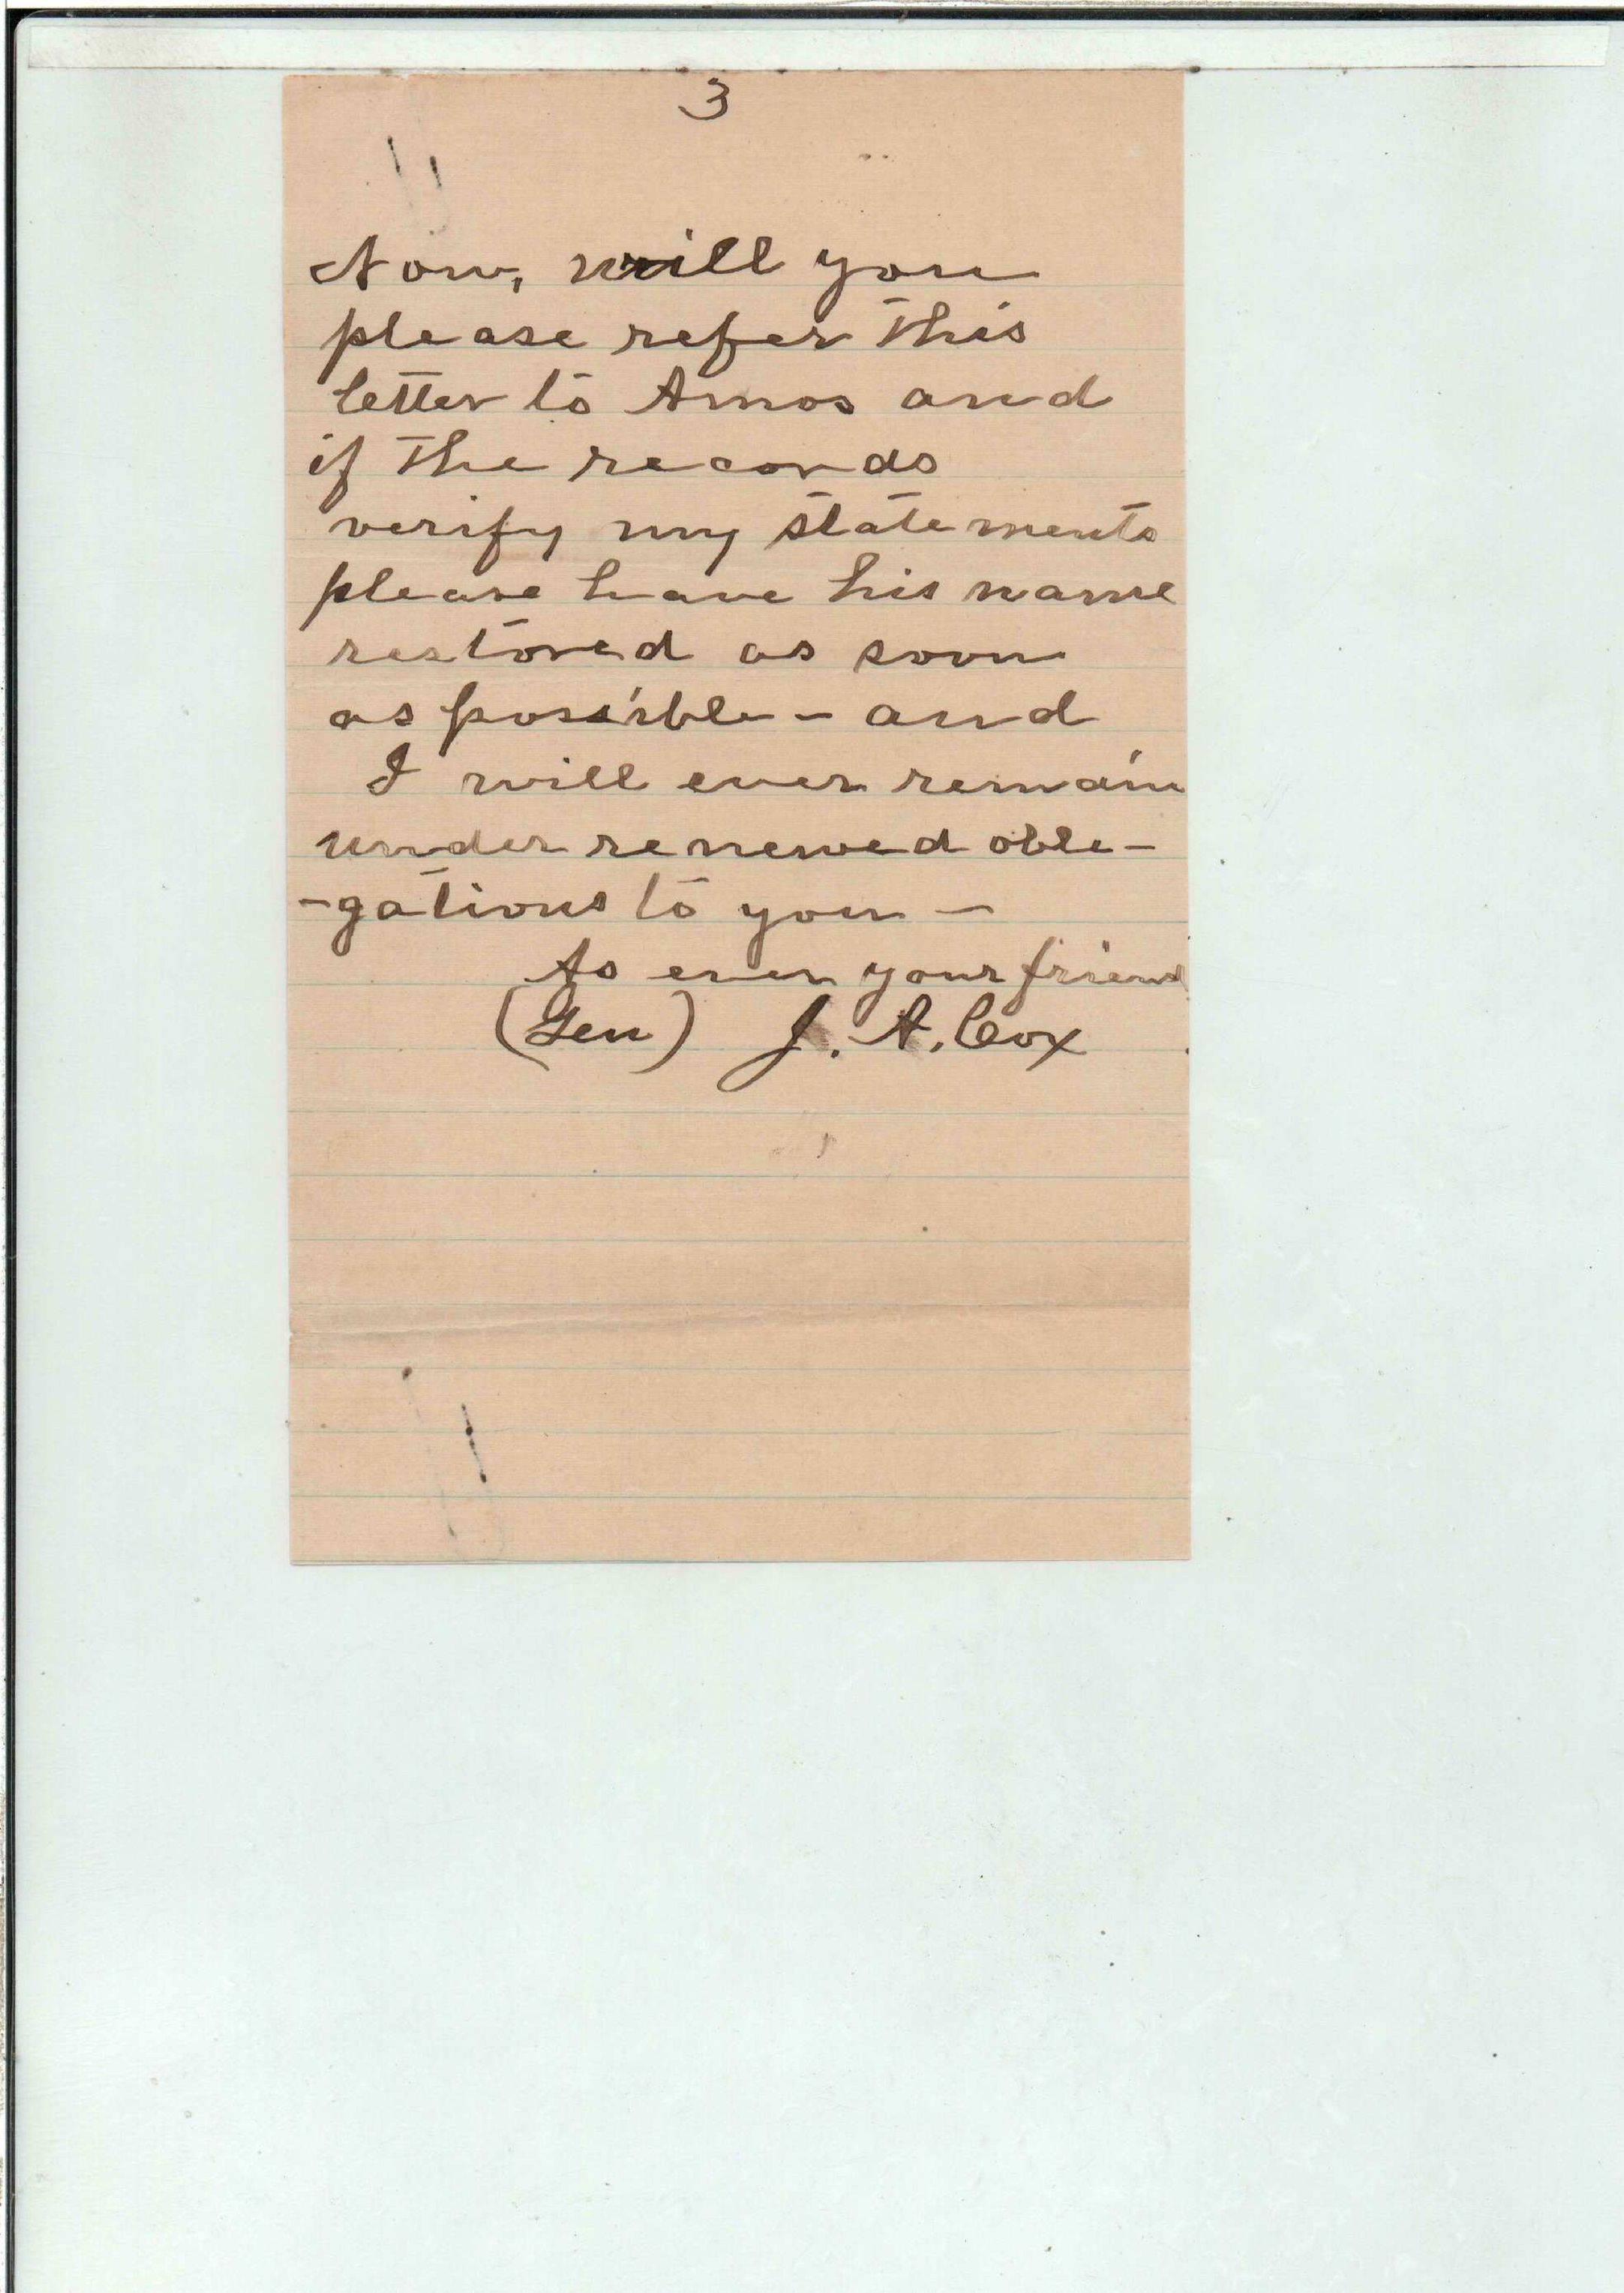 3
Now, will you
please refer this
letter to Amos and
if the records
verify my statements
please have his name
restored as soon
as possible - and
I will ever remain
under renewed oble-
-gations to you -
As ever your friend
(Gen) J. A. Cox